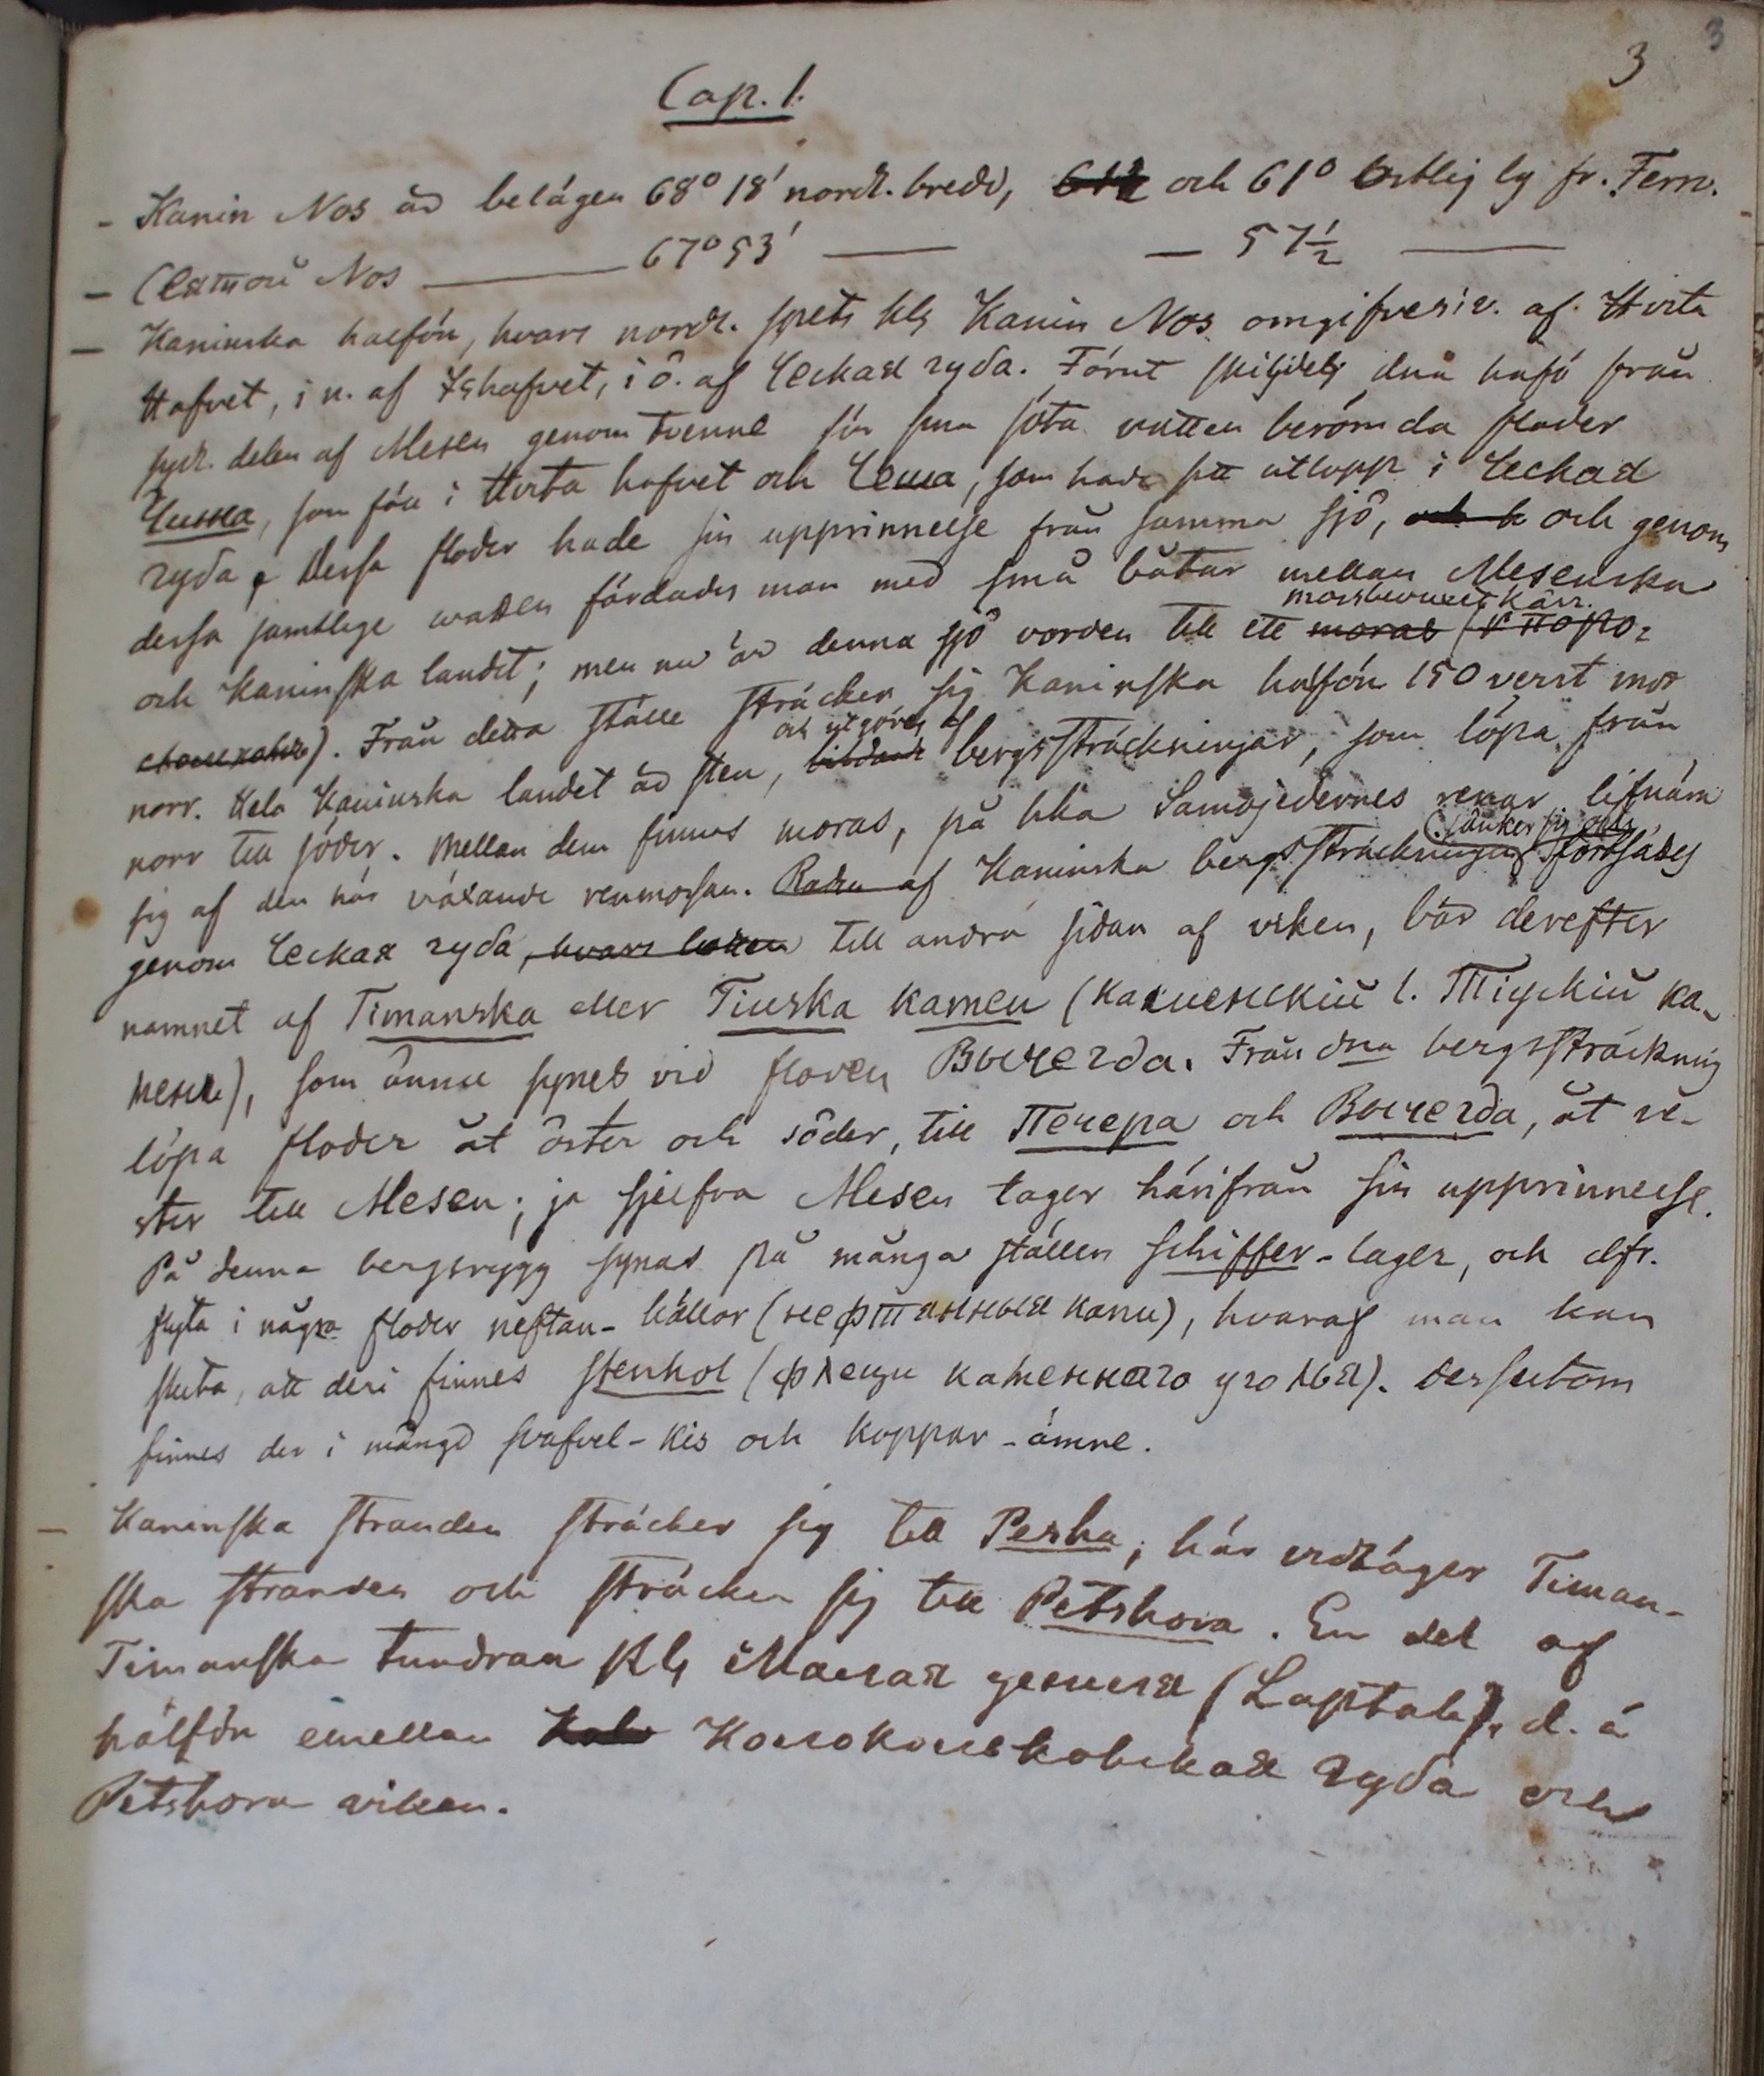 3
3
Cap. 1.
- Kanin Nos är belägen 68° 18' nordl. bredd, och 61° östlig lg fr. Ferro.
- Святой Nos — 67° 53' — — 57½ —
- Kaninska halfön, hvars nordl. spets kls Kanin Nos omgifves i v. af Hvita
Hafvet, i n. af Ishafvet, i ö. af Ческая губа. Förut skiljdes dna halfö från
sydl. delen af Mesen genom tvenne för sina söta vatten berömda floder
Чижа, som föll i Hvita hafvet och Чеша, som hade sitt utlopp i Ческая
губа. Dessa floder hade sin upprinnelse från samma sjö, och genom
dessa samtlige vatten färdades man med små båtar mellan Mesenska
mossbevuxet kärr.
och Kaninska landet; men nu är denna sjö vorden till ett moras
). Från detta ställe sträcker sig Kaninska halfön 150 verst mot
och utgöres af
norr. Hela Kaninska landet är sten, bildande bergssträckningar, som löpa från
norr till söder. Mellan dem finnas moras, på hka Samojedernes renar lifnära
sänker sig och
sig af den här växande renmossan. Raden af Kaninska bergssträckningen fortsättes
genom Ческая губа, hvars botten till andra sidan af viken, bär derefter
namnet af Timanska eller Tiunska kamen (Каменскій l. Тіунскій ка-
мень), som ännu synes vid floden Вычегда. Från dna bergssträckning
löpa floder åt öster och söder, till Печера och Вычегда, åt ve-
ster till Mesen; ja sjelfva Mesen tager härifrån sin upprinnelse.
På denna bergsrygg synas på många ställen schiffer-lager, och dfr.
flyta i några floder neftan-källor (нефтанныя), hvaraf man kan
sluta, att deri finnes stenkol (каменнаго уголья). Dessutom
finnes der i mängd svafvel-kis och koppar-ämne.
- Kaninska stranden sträcker sig till Pesha; här vidtager Timan-
ska stranden och sträcker sig till Petshora. En del af
Timanska tundran kls Малая земля (Laptah), d. ä
halfön emellan Колоколковская губа och
Petshora viken.